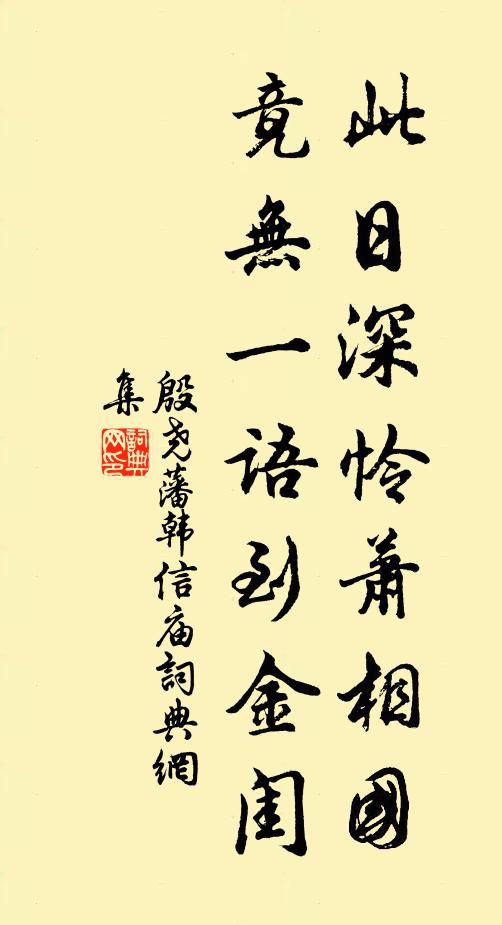 此日深怜萧相國
竟無一语到金闺
殷尧藩韩信庙詞典網
集
詞典
网印